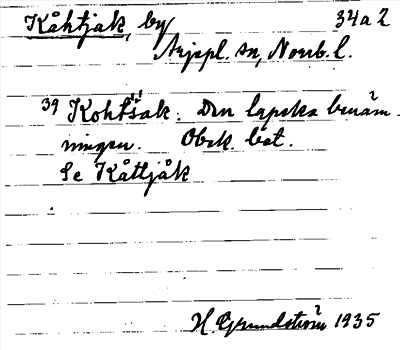 Kåhtjak, by 34a2
Arjepl. sn, Norrb. l.
39 Kohtsak: Den lapska benäm-
ningen. Obek. bet.
Se Kåttjåk
H. Grundström 1935